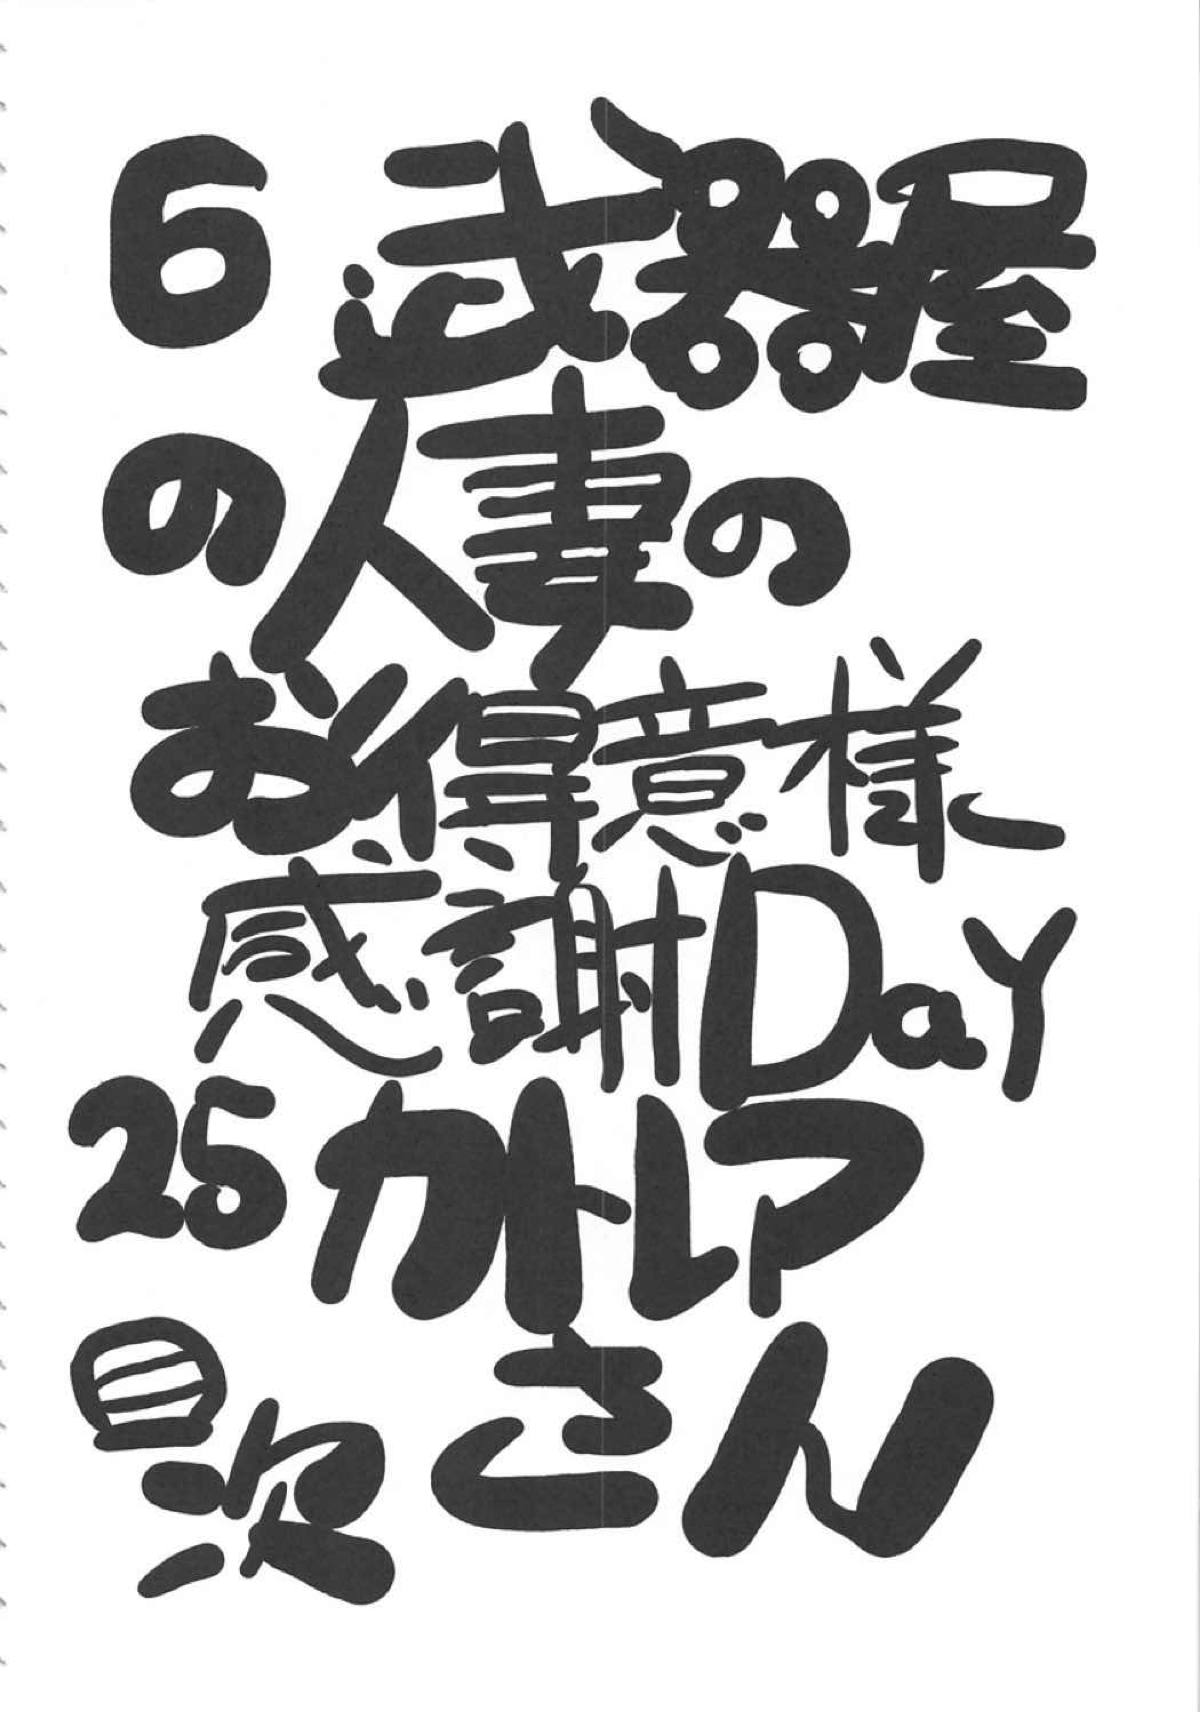 6 武器屋
の人妻の
お得意様
感謝Day
25 カトレア
さん
目次